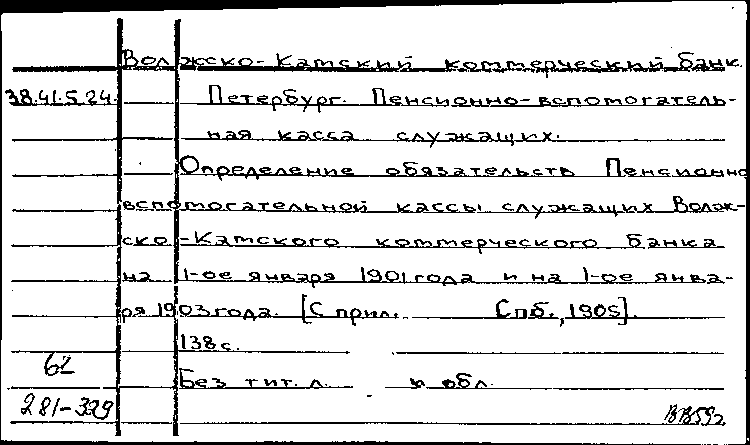 Волжско-Камский коммерческий банк.
38.41.5.24. Петербург. Пенсионно-вспомогатель-
ная касса служащих.
Определение обязательств Пенсионно
вспомогательной кассы служащих Волж-
ско-Камского коммерческого банка
на 1-ое января 1901 года и на 1-ое янва-
ря 1903 года. [С прил. Спб., 1905].
138 с.
62
Без тит. л. и обл.
281-329